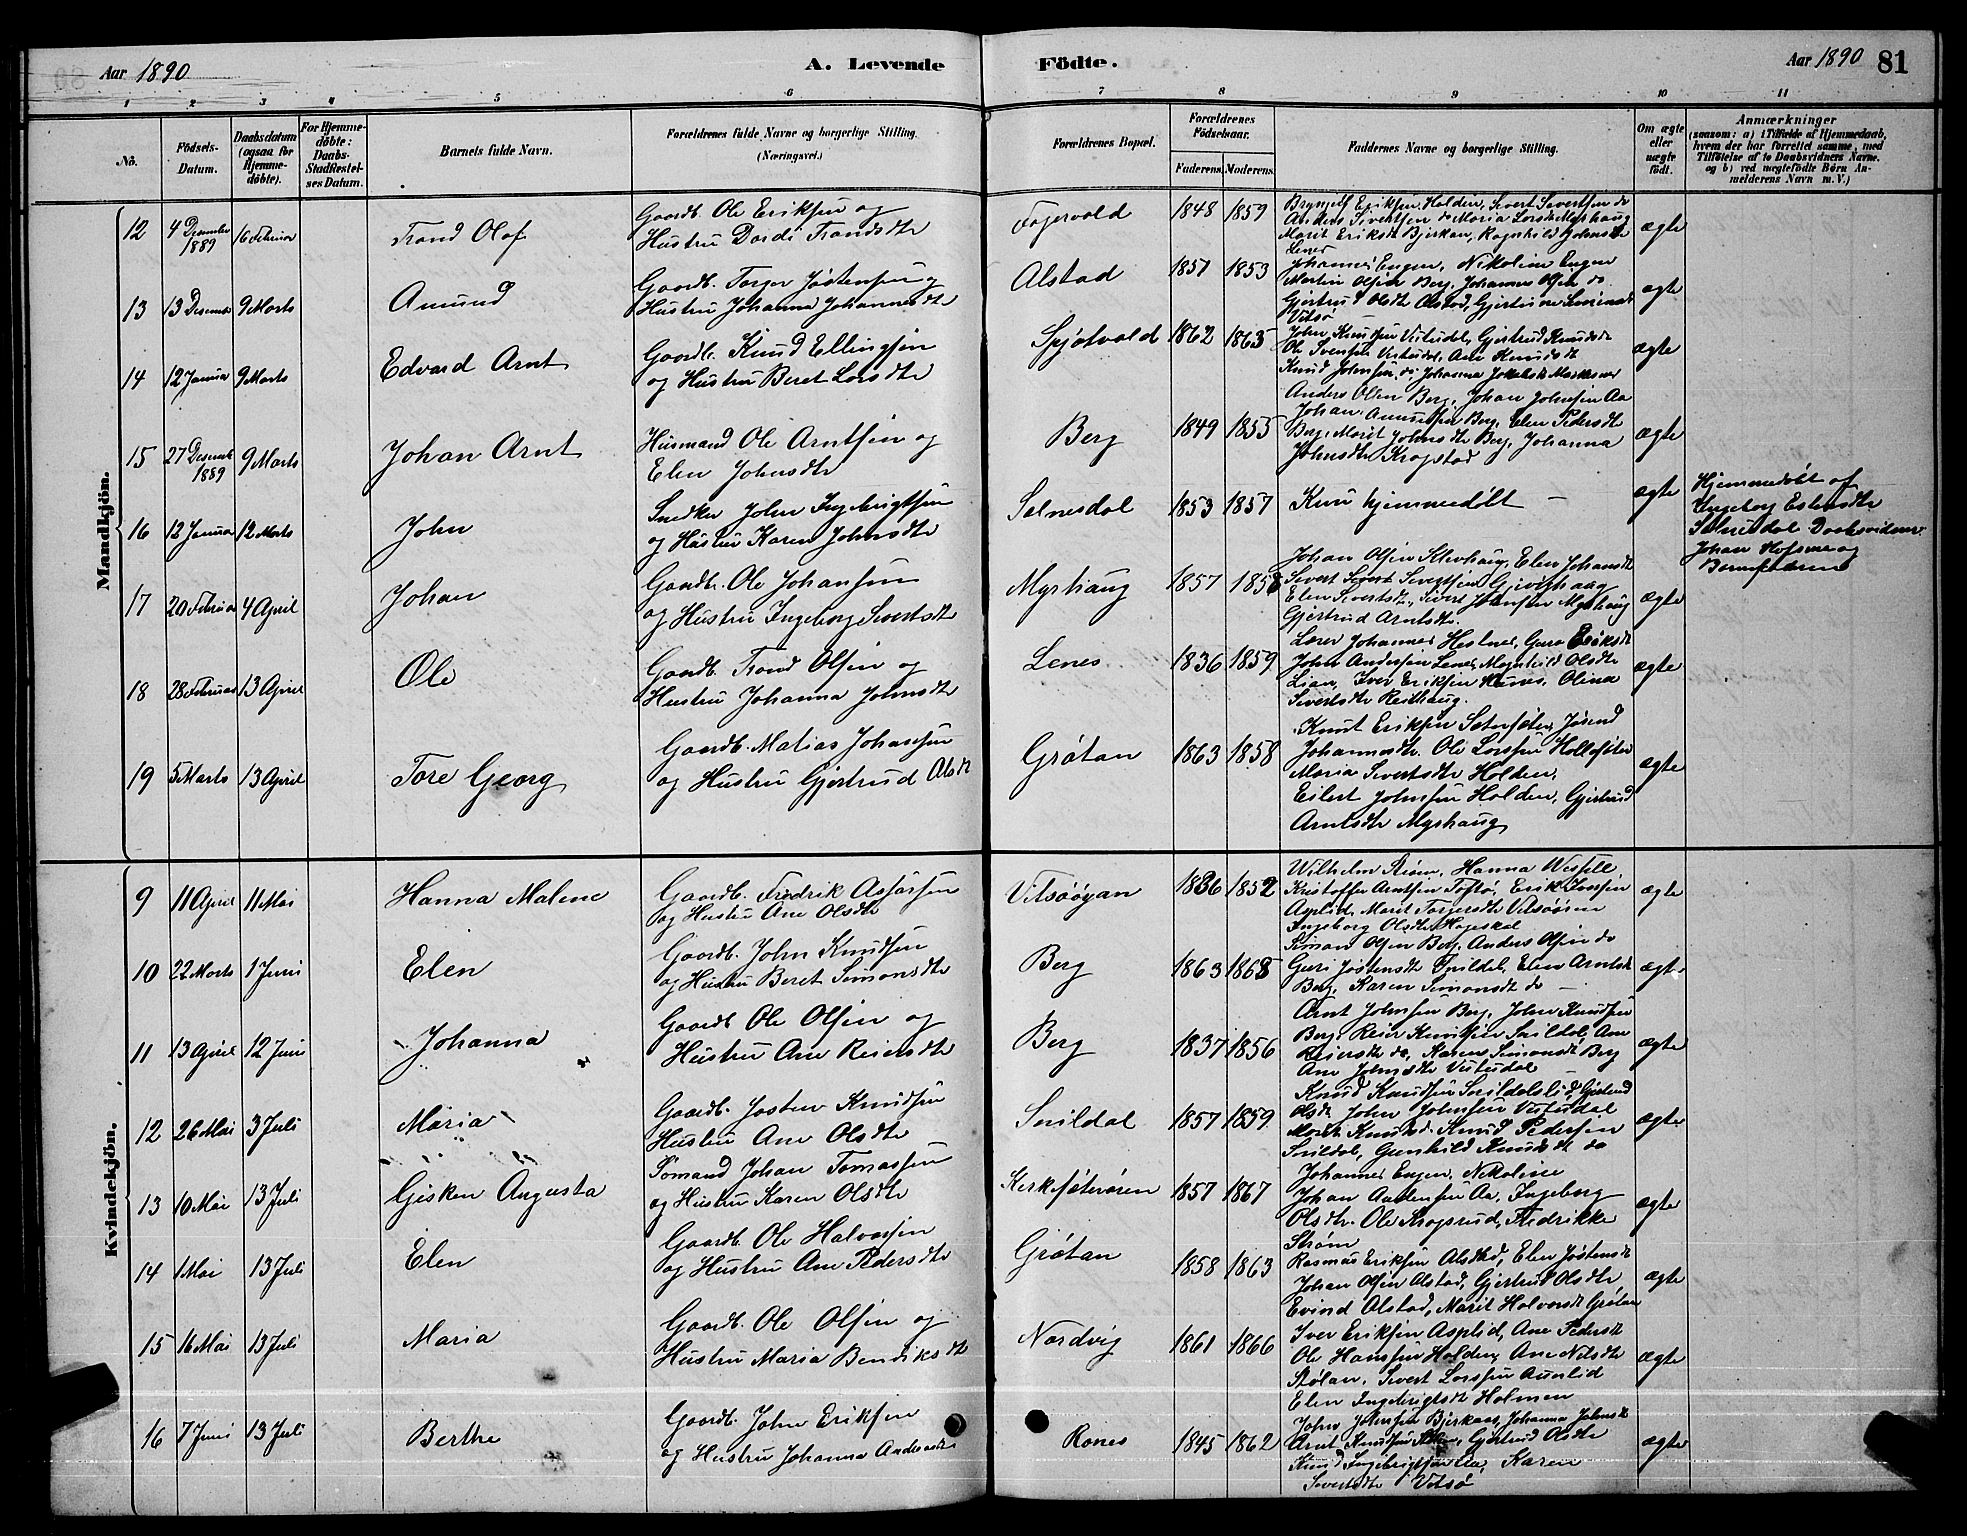 Aar 1890
A. Levende
Födte.
Aar 1890
81
1 2 3 4 5 6 7 8 9 10 11
No.
Födsels-
Datum.
Daabsdatum
(ogsaa for
Hjemme-
döbte).
For Hjemme-
döbte:
Daabs-
Stadfæstel-
ses Datum.
Barnets fulde Navn.
Forældrenes fulde Navne og borgerlige Stilling.
(Næringsvei.)
Forældrenes Bopæl.
Forældrenes
Födselsaar.
Faderens. Moderens.
Faddernes Navne og borgerlige Stilling.
Om ægte
eller
uægte
født.
Anmærkninger
(saasom: a) i Tilfælde af Hjemmedaab,
hvem der har forrettet samme, med
Tilföielse af to Daabsvidners Navne,
og b) ved uægtefödte Börn An-
melderens Navn m.V.)
Mandkjön.
12 4 Desember 1889 16 Februar Trond Olof
Gaardb. Ole Eriksen og
Hustru Dordi Trondsdtr
Fagervold 1848 1859
Brynjelf Eriksen Holden, Sivert Sivertsen do
Anders Sivertsen do Maria Larsdtr Myrhaug
Marit Eriksdtr Bjerkan, Ragnhild Johnsdtr
Lenes
ægte
13 13 Desember 9 Marts Amund
Gaardb. Torger Jøstensen og
Hustru Johanna Johannesdtr
Alstad 1857 1853
Johannes Engen, Nikoline Engen
Martin Olsen Berg, Johannes Olsen do.
Gjertrud Olsdtr Alstad, Gjertine
Vitsø
ægte
14 12 Januar 9 Marts Edvard Arnt
Gaardb. Knud Ellingsen
og Hustru Beret Larsdtr
Spjøtvold 1862 1863
John Knudsen Vistudal, Gjertrud Knudsdtr
Ole Sivertsen Vistudal, Ane Knudsdtr
Knud Johnsen do Johanna
ægte
15 27 Desemb 1889 9 Marts Johan Arnt
Husmand Ole Arntsen og
Elen Johnsdtr
Berg 1849 1855
Anders Olsen Berg, Johan Johnsen Aa
Johan Berg, Elen Pedersdtr
Berg, Marit Johnsdtr Berg, Johanna
Johnsdtr Krogstad
ægte
16 12 Januar 12 Marts John
Snedker John Ingebrigtsen
og Hustru Karen Johnsdtr
Solnesdal 1853 1857
Kun hjemmedøbt —
ægte
Hjemmedøbt af
Ingeborg
Daabsvidner
Johan og
Barnefaderen
17 20 Februar 4 April Johan
Gaardb. Ole Johansen
og Hustru Ingeborg Sivertsdtr
Myrhaug 1857 1858
Johan Olsen Elen Johansdtr
Sivert Sivertsen
Elen Sivertsdtr, Sivert Johnsen Myrhaug
Gjertrud Arntsdtr.
ægte
18 28 Februar 13 April Ole
Gaardb. Trond Olsen og
Hustru Johanna Johnsdtr
Lenes 1836 1859
Lærer Johannes Hestnes, Guro Eriksdtr
John Andersen Lenes, Magnhild Olsdtr
Lian, Iver Eriksen Olina
Sivertsdtr
ægte
19 5 Marts 13 April Tore Georg
Gaardb. Matias Johansen
og Hustru Gjertrud Olsdtr
Grøtan 1863 1858
Knut Eriksen
Johannesdtr. Ole Larssen
Maria Sivertsdtr Holden,
Eilert Johnsen Holden, Gjertrud
Arntsdtr Myrhaug
ægte
Kvindekjön.
9 11 April 11 Mai Hanna Malene
Gaardb. Fredrik Assarsen
og Hustru Ane Olsdtr
Vitsøøyan 1836 1852
Wilhelm Strøm, Hanna Wessel
Kristoffer Arntsen Toftø, Erik Larsen
Asplid, Marit Torgersdtr
Ingeborg Olsdtr
ægte
10 22 Marts 1 Juni Elen
Gaardb. John Knudsen
og Hustru Beret Simonsdtr
Berg 1863 1868
Simon Olsen Berg, Anders Olsen do
Guri Jøstensdtr Snildal, Elen Arntsdtr
Berg, Karen Simonsdtr do —
ægte
11 13 April 12 Juni Johanna
Gaardb Ole Olsen og
Hustru Ane Reiersdtr
Berg 1837 1856
Arnt Johnsen Berg, John Knudsen
Berg, Reier Knudsen Snildal, Ane
Reiersdtr do, Karen Simonsdtr Berg
Ane Johnsdtr Vistudal
ægte
12 26 Mai 3 Juli Maria
Gaardb. Josten Knudsen
Hustru Ane Olsdtr
Snildal 1857 1859
Knud Knudsen Snildalslid, Gjertrud
Olsdtr John Johnsen Vistudal
Marit Knudsdtr Knud Pedersen
Snildal, Gunhild Knudsdtr do
ægte
13 10 Mai 13 Juli Gjsken Augusta
Sømand Johan Tomassen
og Hustru Karen Olsdtr
Kirksæterøren 1857 1867
Johannes Engen, Nikoline
Johan Andersen Aa, Ingeborg
Olsdtr. Ole Krogsrud, Fredrikke
Strøm
ægte
14 1 Mai 13 Juli Elen
Gaardb. Ole Halvorsen
og Hustru Ane Pedersdtr
Grøtan 1858 1863
Rasmus Eriksen Alstad, Elen Jøstensdtr
Johan Olsen Alstad, Gjertrud Olsdtr
Evind Alstad, Marit Halvorsdtr Grøtan
ægte
15 16 Mai 13 Juli Maria
Gaardb. Ole Olsen og
Hustru Maria Bendiksdtr
Nordvig 1861 1866
Iver Eriksen Asplid, Ane Pedersdtr
Ole Hanssen Holden, Ane Nilsdtr
Stølan, Sivert Larssen Aunlid
Elen Ingebrigtsdtr Holmen
ægte
16 7 Juni 13 Juli Berthe
Gaardb. John Eriksen
og Hustru Johanna Andersdtr
Rones 1845 1862
John Johnsen Bjerkaas, Johanna Johnsdtr
Arnt Knudsen Gjertrud Olsdtr
Knud Ingebrigtsen Aa, Karen
Sivertsdtr Vitsø
ægte